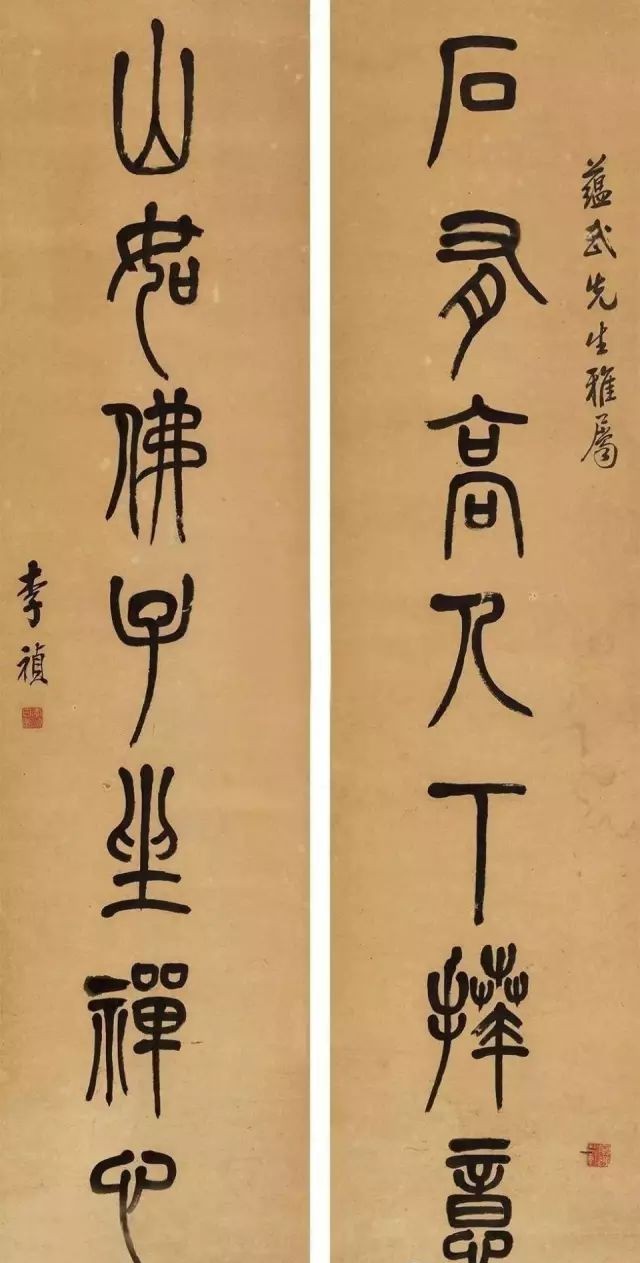 蘊武先生雅屬
石有高人下拜意
山如佛子坐禪心
李禎